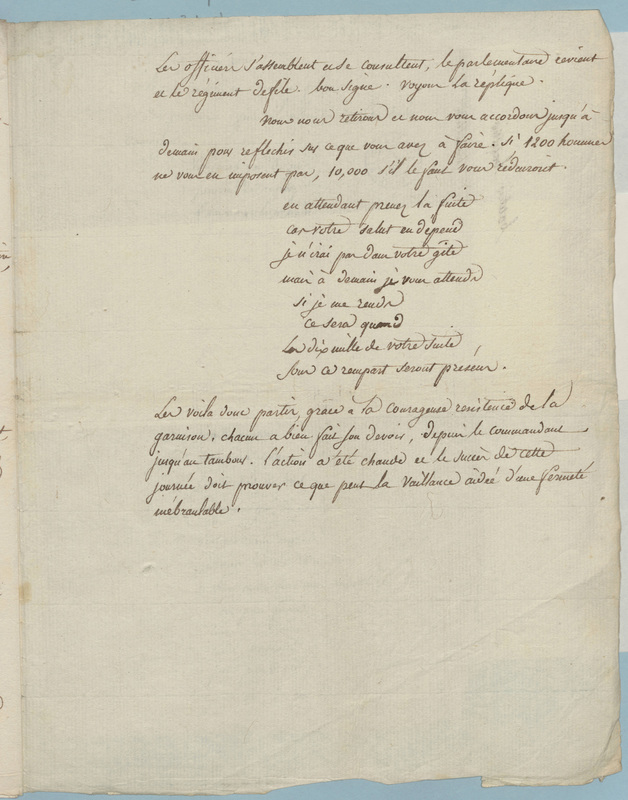 Les officiers s'assemblent et se consultent, le parlementaire revient
et le régiment defile. bon signe. voyons la réplique.
Nous nous retirons et nous vous accordons jusqu'à
demain pour reflechir sur ce que vous avez à faire. si 1200 hommes
ne vous en imposent pas, 10,000 s'il le faut vous réduiront.
en attendant prenez la fuite
car votre salut en dépend
je n'irai pas dans votre gîte
mais à demain je vous attends
si je me rends
ce sera quand
Les dix mille de votre suite
sous ce rempart seront présens.
Les voila donc partis, grâce à la courageuse resistence de la
garnison, chacun a bien fait son devoir, depuis le commandant
jusqu'au tambour. l'action a été chaude et le succès de cette
journée doit prouver ce que peut la vaillance aidée d'une fermeté
inébranlable.